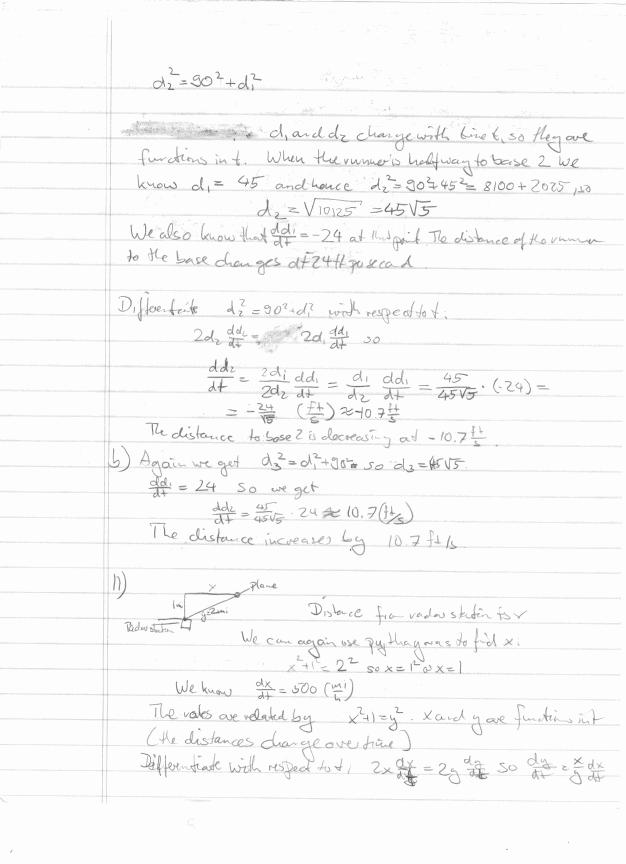 d₂² = 90² + d₁²
d₁ and d₂ change with time t, so they are
functions in t. When the runner is halfway to base 2 we
know d₁ = 45 and hence d₂² = 90² + 45² = 8100 + 2025, so
d₂ = √10125 = 45√5
We also know that dd₁/dt = -24 at this point. The distance of the runner
to the base changes at -24 ft per second.
Differentiate d₂² = 90² + d₁² with respect to t.
2d₂ dd₂/dt = 2d₁ dd₁/dt so
dd₂/dt = 2d₁/2d₂ dd₁/dt = d₁/d₂ dd₁/dt = 45/45√5 · (-24) =
= -24/√5 (ft/s) ≈ -10.7 ft/s
The distance to base 2 is decreasing at -10.7 ft/s.
b) Again we get d₃² = d₁² + 90² so d₃ = 45√5.
dd₁/dt = 24 so we get
dd₂/dt = 45/45√5 · 24 ≈ 10.7 (ft/s)
The distance increases by 10.7 ft/s
11)
x plane
1m y=2mi
Radar station
Distance from radar station is
We can again use pythagoras to find x:
x² + 1² = 2² so x =
We know dx/dt = 500 (mi/h)
The rates are related by x² + 1 = y². x and y are functions in t
(the distances change over time)
Differentiate with respect to t, 2x dx/dt = 2y dy/dt so dy/dt = x/y dx/dt